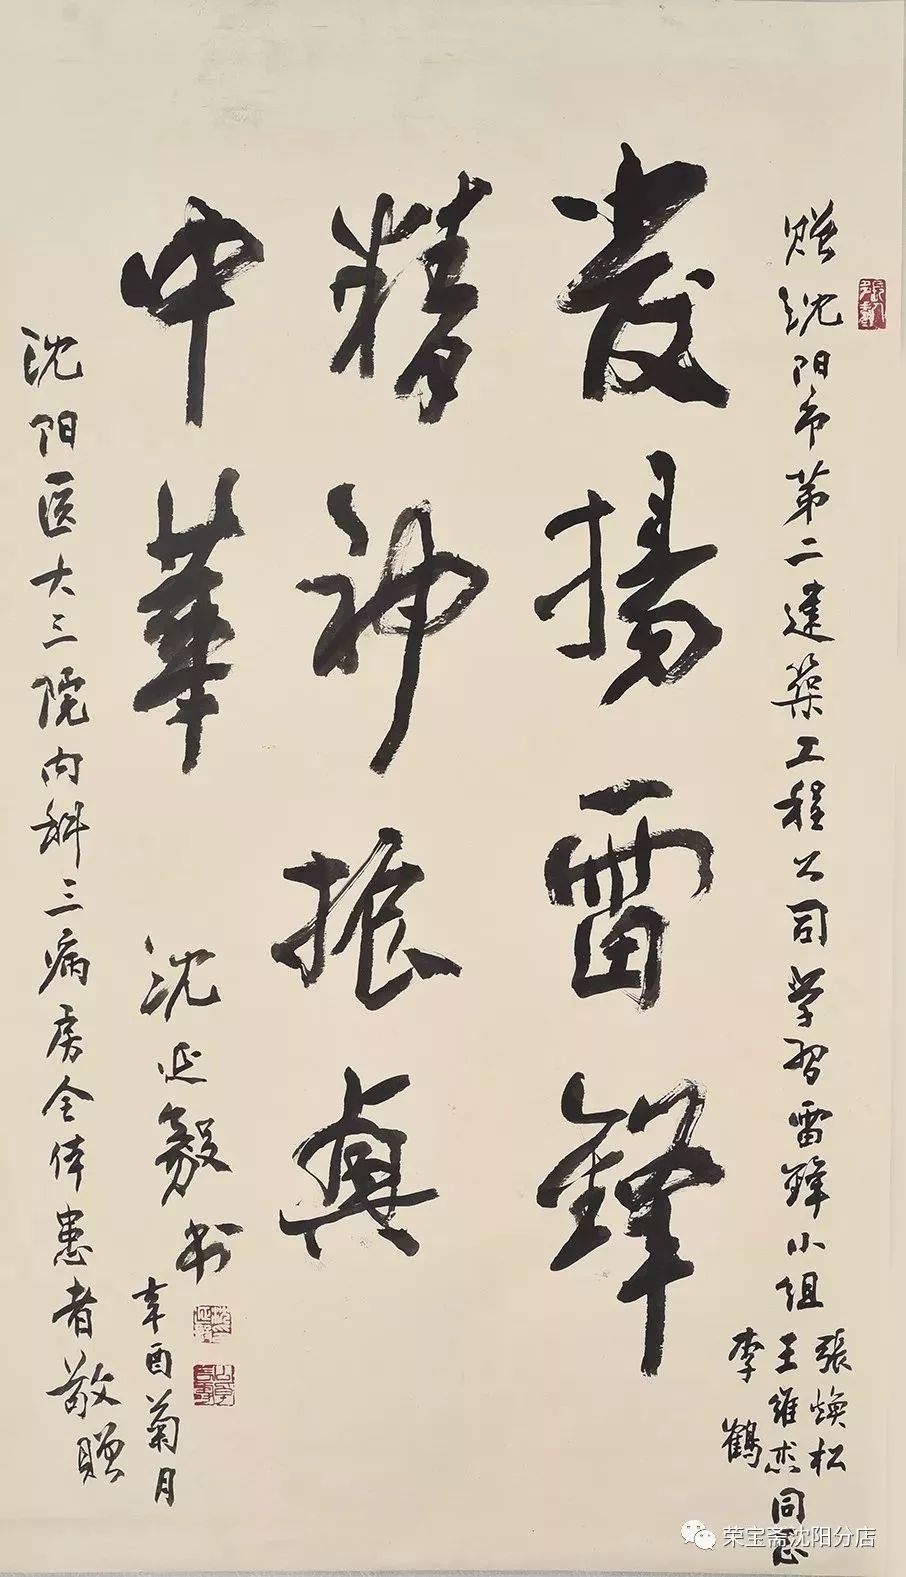 赠沈阳市第二建築工程公司学習雷锋小组
張焕松
王维杰同志
李鶴
发揚雷鋒
精神振真
中華
沈延毅书
辛酉菊月
沈阳医大三院内科三病房全体患者敬贈
荣宝斋沈阳分店